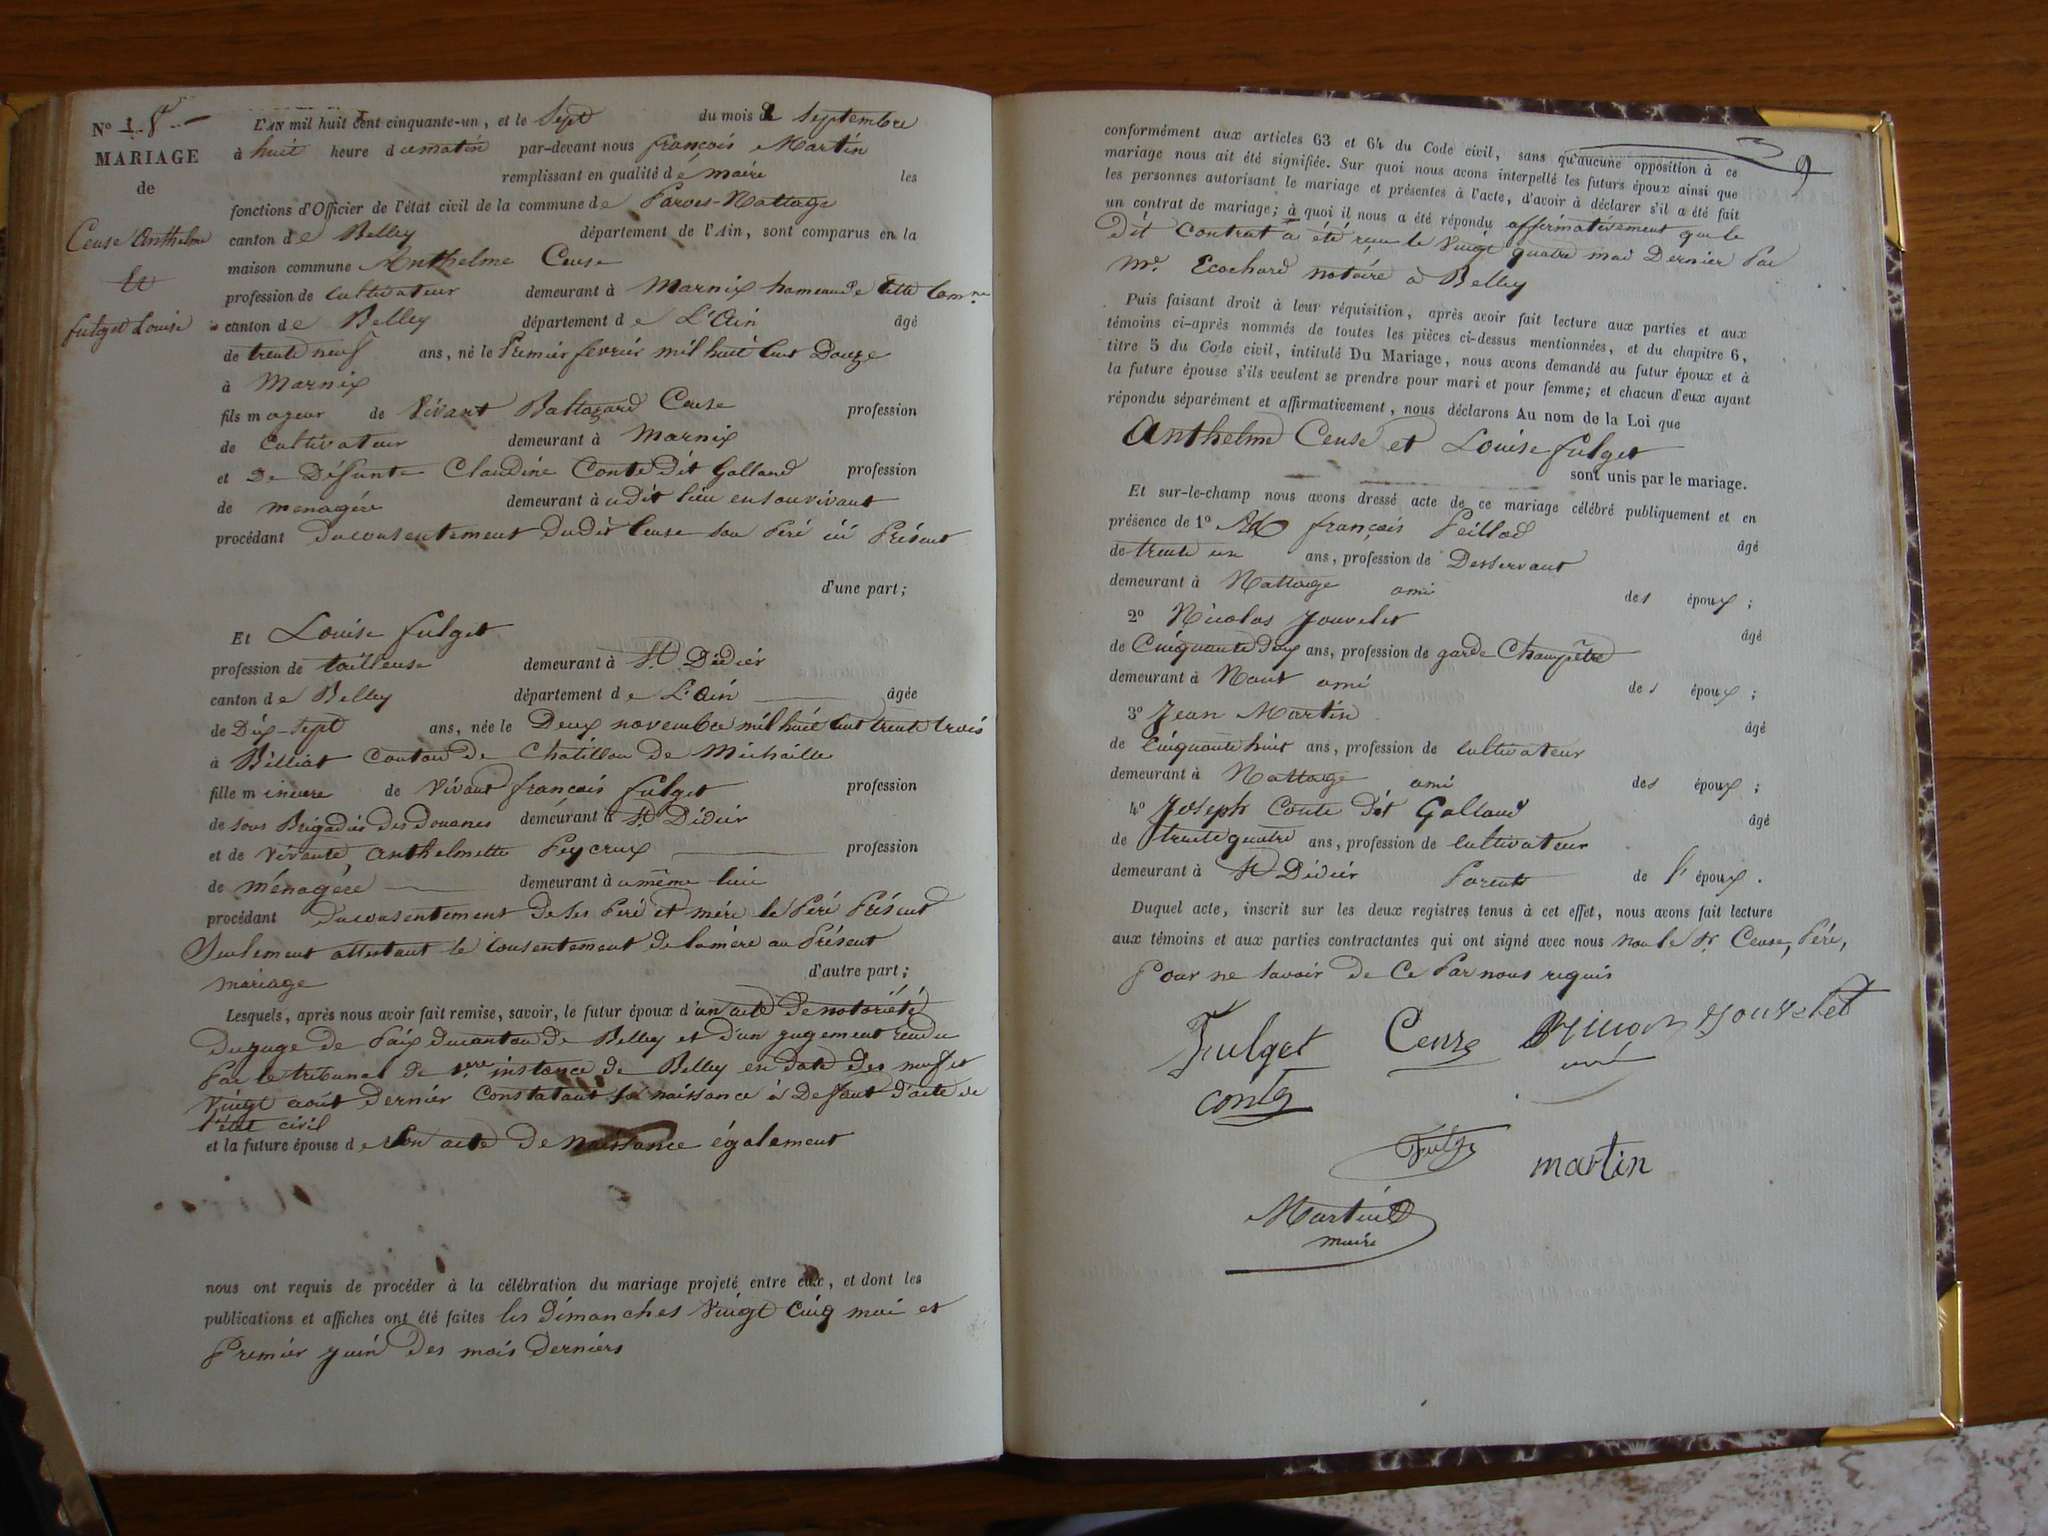 Nº 18
MARIAGE
de
Ceuse Anthelme
et
fulget Louise
L'AN mil huit cent cinquante-un, et le Sept du mois de Septembre
à huit heure du matin par-devant nous françois Martin
remplissant en qualité de maire les
fonctions d'Officier de l'état civil de la commune de Parves-Nattage
canton de Belley département de l'Ain, sont comparus en la
maison commune Anthelme Ceuse
profession de cultivateur demeurant à Marnix hameau de cette Com.ne
canton de Belley département de L'Ain âgé
de trente neuf ans, né le Premier fevrier mil huit cent Douze
à Marnix
fils majeur de Vivant Baltazard Ceuse profession
de Cultivateur demeurant à Marnix
et De Défunte Claudine Conte dit Golland profession
de menagére demeurant àudit lieu en son vivant
procédant du consentement dudit Ceuse son Peré ici Présent
d'une part;
Et Louise fulget
profession de tailleuse demeurant à St. Didier
canton de Belley département de L'Ain âgée
de Dix-Sept ans, née le Deux novembre mil huit cent trente trois
à Billiat Canton de Chatillon de Michaille
fille mineure de Vivant françois fulget profession
de Sous Brigadier des Douanes demeurant à St. Didier
et de Vivante Anthelmette Peycrux profession
de Ménagére demeurant au même lieu
procédant du consentement de ses Peré et mére le Péré Présent
Seulement attestant le consentement de la mére au Présent
mariage d'autre part;
Lesquels, après nous avoir fait remise, savoir, le futur époux d'un acte de notoriété
du juge de Paix du canton de Belley et d'un jugement rendu
Par le tribunal de 1ere instance de Belley en date des neuf et
Vingt août dernier Constatant sa naissance à Defaut d'acte de
l'état civil
et la future épouse de Son acte de Naissance également
nous ont requis de procéder à la célébration du mariage projeté entre eux, et dont les
publications et affiches ont été faites les dimanches Vingt Cinq mai et
Premier juin des mois derniers
9
conformément aux articles 63 et 64 du Code civil, sans qu'aucune opposition à ce
mariage nous ait été signifiée. Sur quoi nous avons interpellé les futurs époux ainsi que
les personnes autorisant le mariage et présentes à l'acte, d'avoir à déclarer s'il a été fait
un contrat de mariage; à quoi il nous a été répondu affirmativement que le
dit Contrat a été reçu le Vingt quatre mai Dernier Par
Me. Ecochard notaire à Belley
Puis faisant droit à leur réquisition, après avoir fait lecture aux parties et aux
témoins ci-après nommés de toutes les pièces ci-dessus mentionnées, et du chapitre 6,
titre 5 du Code civil, intitulé Du Mariage, nous avons demandé au futur époux et à
la future épouse s'ils veulent se prendre pour mari et pour femme; et chacun d'eux ayant
répondu séparément et affirmativement, nous déclarons Au nom de la Loi que
Anthelme Ceuse et Louise fulget
sont unis par le mariage.
Et sur-le-champ nous avons dressé acte de ce mariage célébré publiquement et en
présence de 1º françois Peillod âgé
de trente un ans, profession de Desservant
demeurant à Nattage ami des époux;
2º Nicolas Jouvelet âgé
de Cinquante deux ans, profession de garde Champêtre
demeurant à Nant ami des époux;
3º Jean Martin âgé
de Cinquante huit ans, profession de Cultivateur
demeurant à Nattage ami des époux;
4º Joseph Conte dit Golland âgé
de trente quatre ans, profession de Cultivateur
demeurant à St Didier Parent de l'époux.
Duquel acte, inscrit sur les deux registres tenus à cet effet, nous avons fait lecture
aux témoins et aux parties contractantes qui ont signé avec nous non le Sr. Ceuse, Péré,
Pour ne savoir de Ce Par nous requis
Fulget Ceuse Jouvelet
conte
martin
Martin
maire